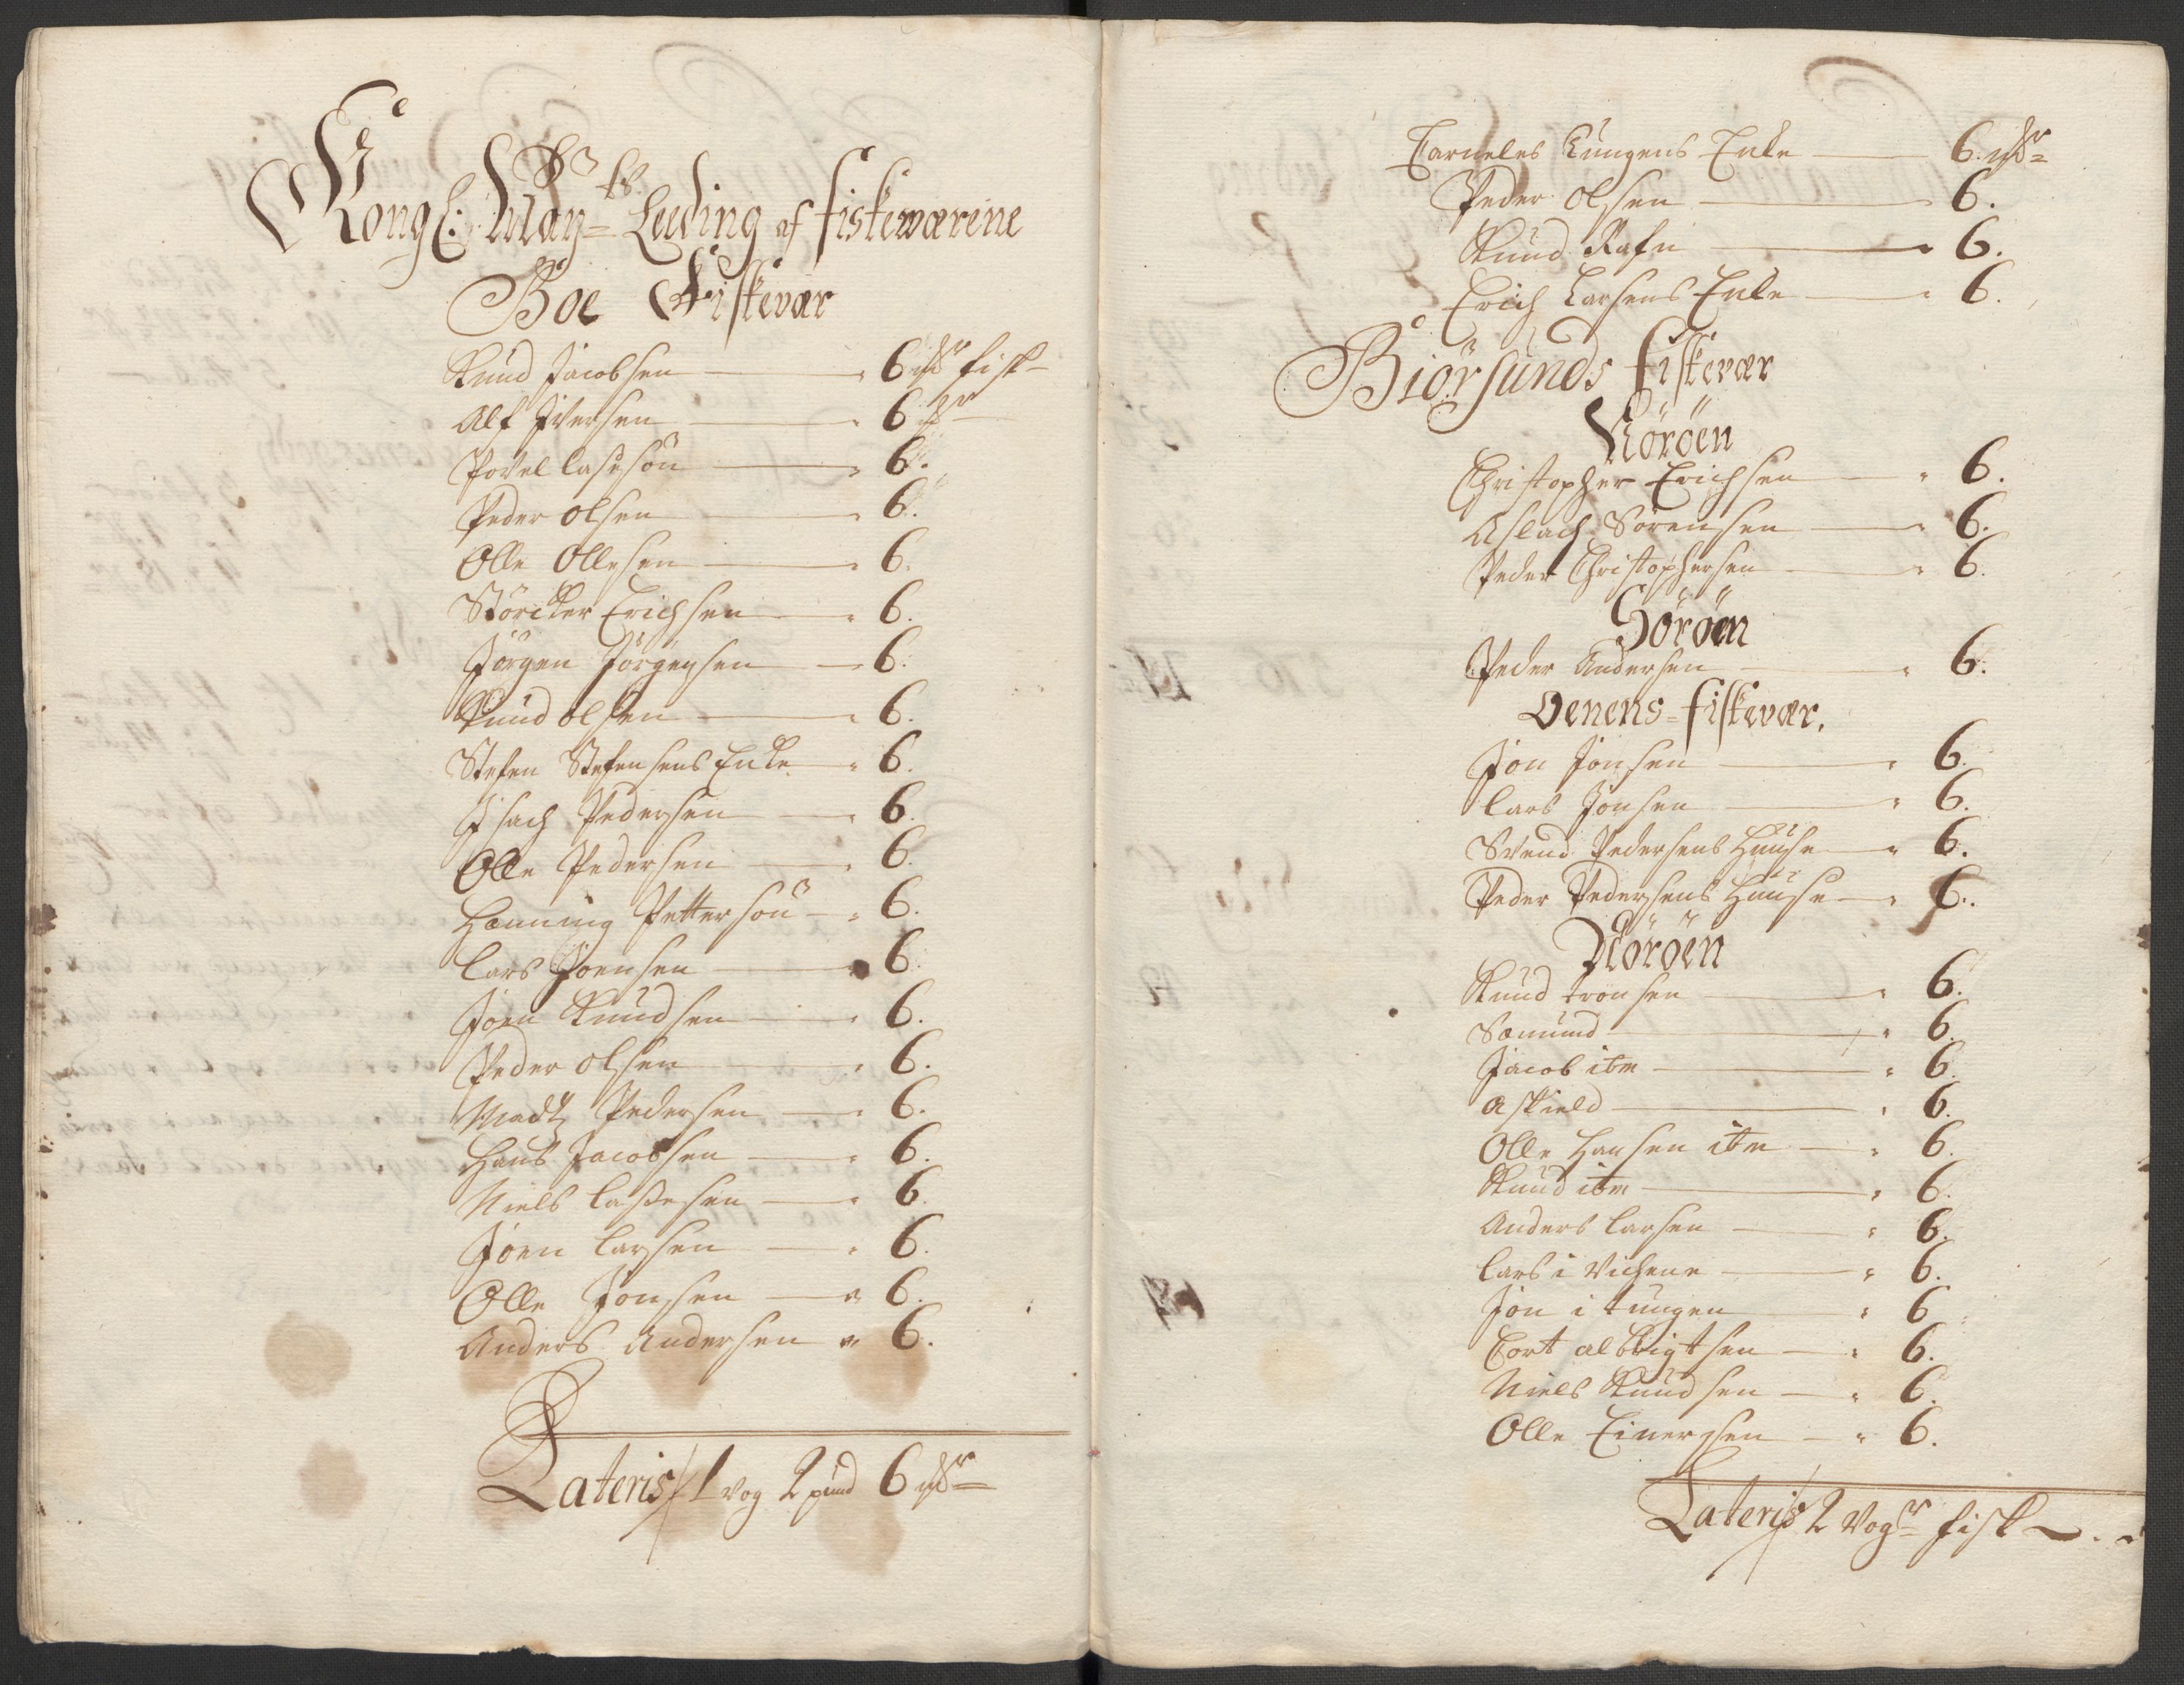 Kongl: May=ts Leeding af fiskewærene
Boe Fiskevær
Knud Jacobsen — 6 mkr fisk
Alf Iversen — 6 mkr
Povel Lasesøn — 6.
Peder Olsen — 6.
Olle Ollesen — 6.
Störcker Erichsen — 6.
Jörgen Jörgensen — 6.
Knud Olsen — 6.
Stefen Stefensens Encke — 6.
Isach Pedersen — 6.
Olle Pedersen — 6.
Henning Pettersön — 6.
Lars Joensen — 6.
Joen Knudsen — 6.
Peder Olsen — 6.
Madtz Pedersen — 6.
Hans Jacobsen — 6.
Niels Lassesen — 6.
Joen Larsen — 6.
Olle Jonsen — 6.
Anders Andersen — 6.
Lateris 1 vog 2 pund 6 mkr
Carneles Enke — 6. mkr
Peder Olsen — 6.
Knud Rafn — 6.
Erich Larsens Enke — 6.
Biörsunds fiskevær
Nöröen
Christopher Erichsen — 6.
Aslach Sörensen — 6.
Peder Christophersen — 6.
Söröen
Peder Andersen — 6.
Oenens=fiskevær.
Jon Jonsen — 6.
Lars Jonsen — 6.
Svend Pedersens Huuse — 6.
Peder Pedersens Huuse — 6.
Nöröen
Knud tronsen — 6.
Sæmund — 6.
Jacob ibm — 6.
Askield — 6.
Olle Hansen ibm — 6.
Knud ibm — 6.
Anders Larsen — 6.
Lars i Vichene — 6.
Jon i tungen — 6
Cort albrigtsen — 6.
Niels Knudsen — 6.
Olle Einersen — 6.
Lateris 2 Vogr fisk